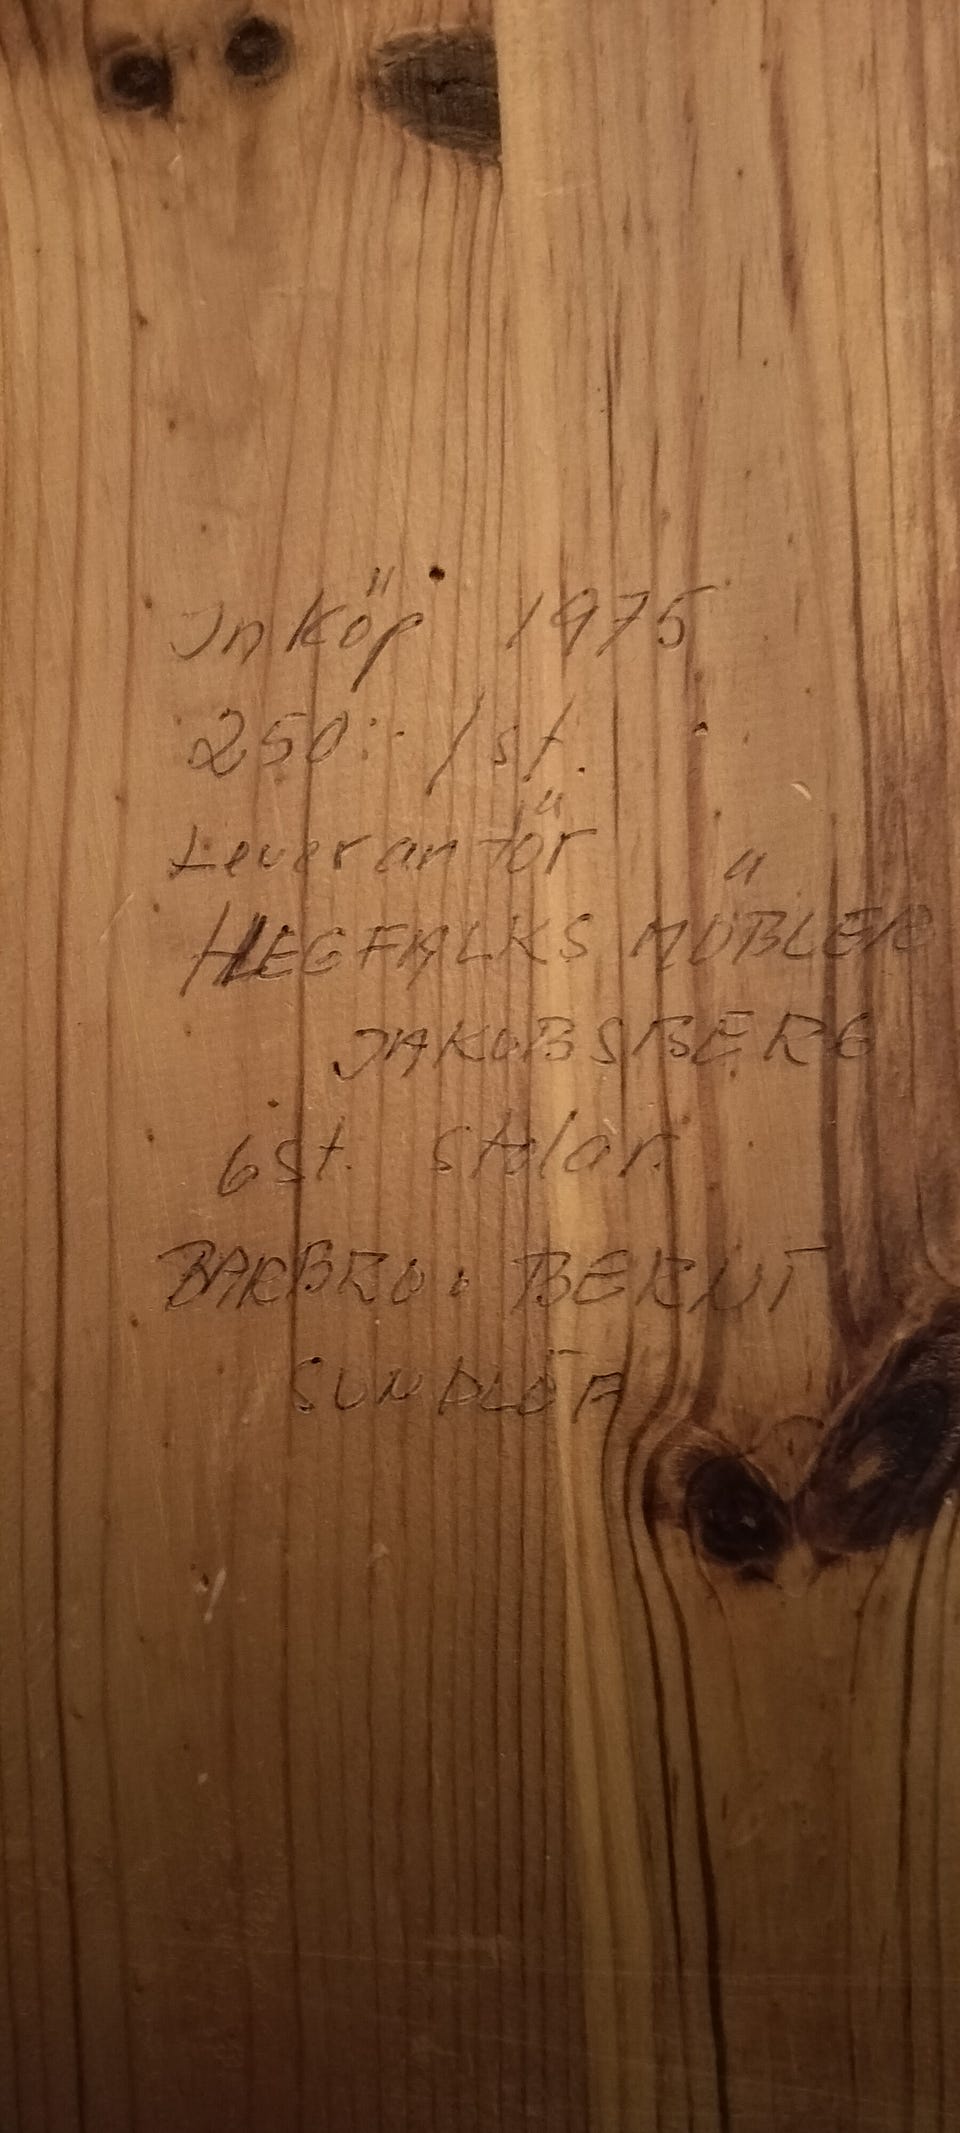 Inköp 1975
250:- /st.
Leverantör
HEGFALKS MÖBLER
JAKOBSBERG
6 st. stolar.
BARBRO o BERNT
SUNDLÖF